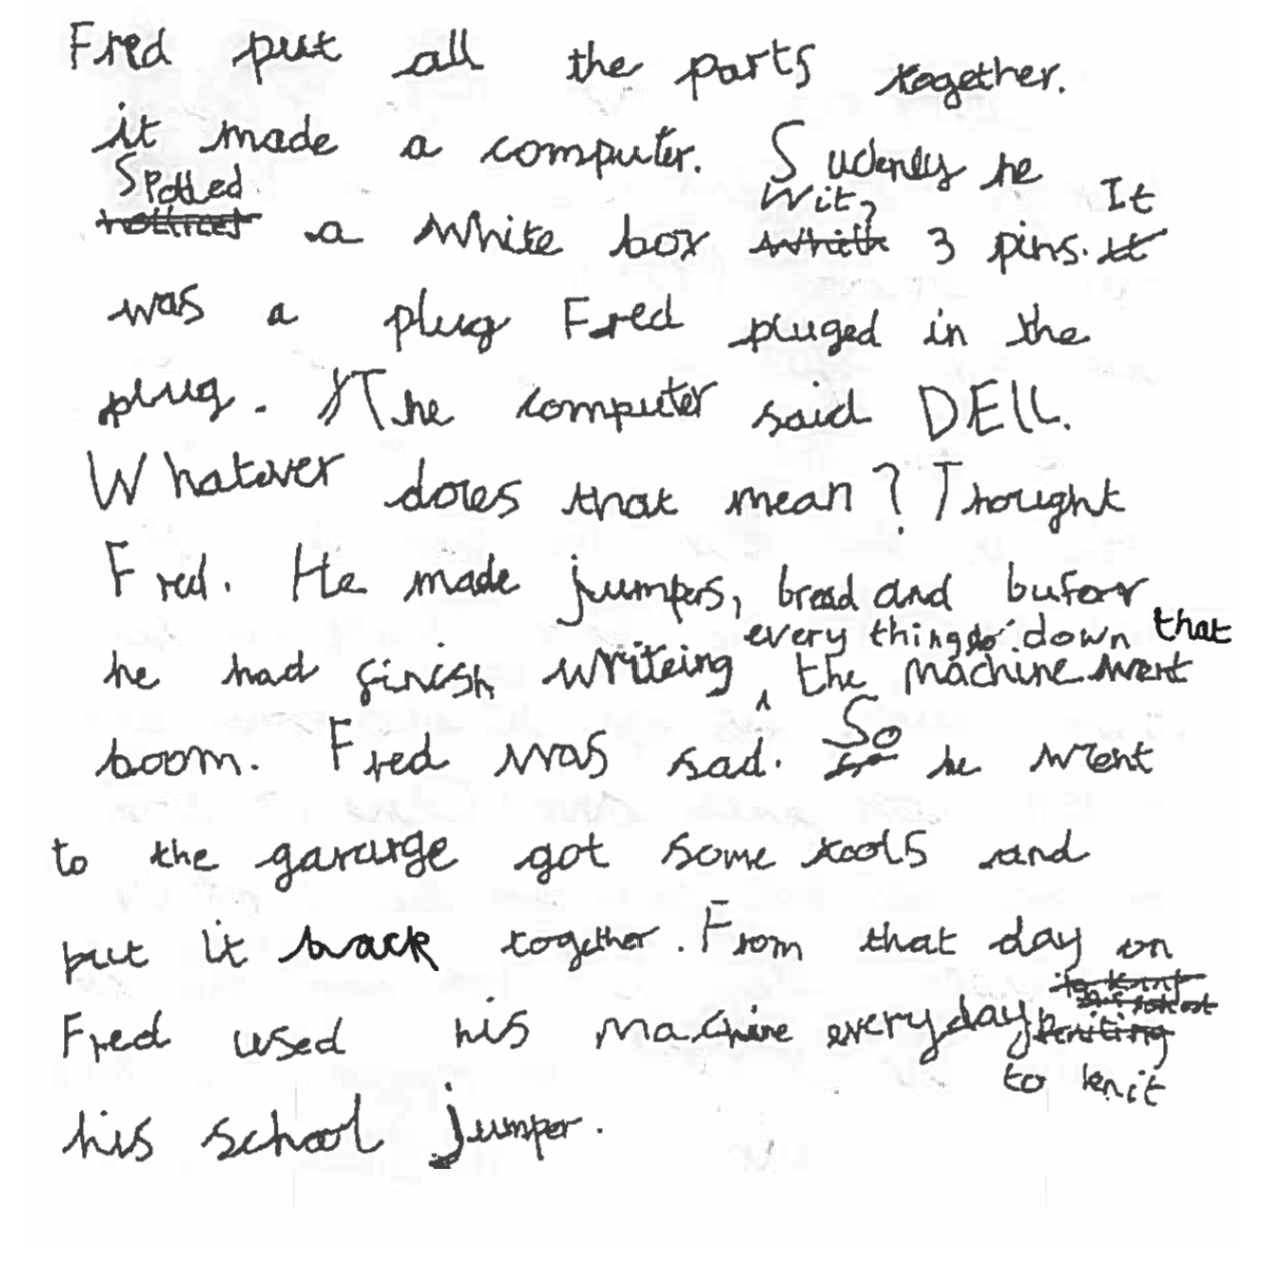 Fred put all the parts together.
it made a computer. Sudenly he
Spotted
a white box with 3 pins. It
was a plug Fred pluged in the
plug. The computer said DELL.
Whatever dores that mean? Thought
Fred. He made jumpers, bread and bufor
every things down that
he had finish writeing the machine went
boom. Fred was sad. So he went
to the gararge got some tools and
put it back together. From that day on
Fred used his machine everyday
to knit
his school jumper.